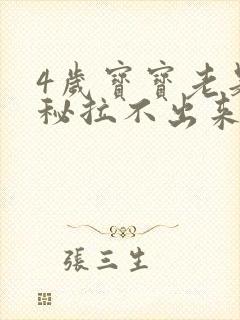 4歲寶寶老是
秘拉不出來
張三生